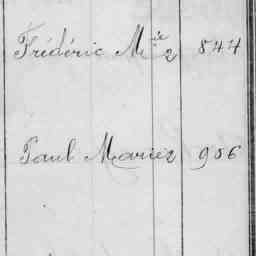 Frédéric Mie 2 844
Paul Marie 2 906